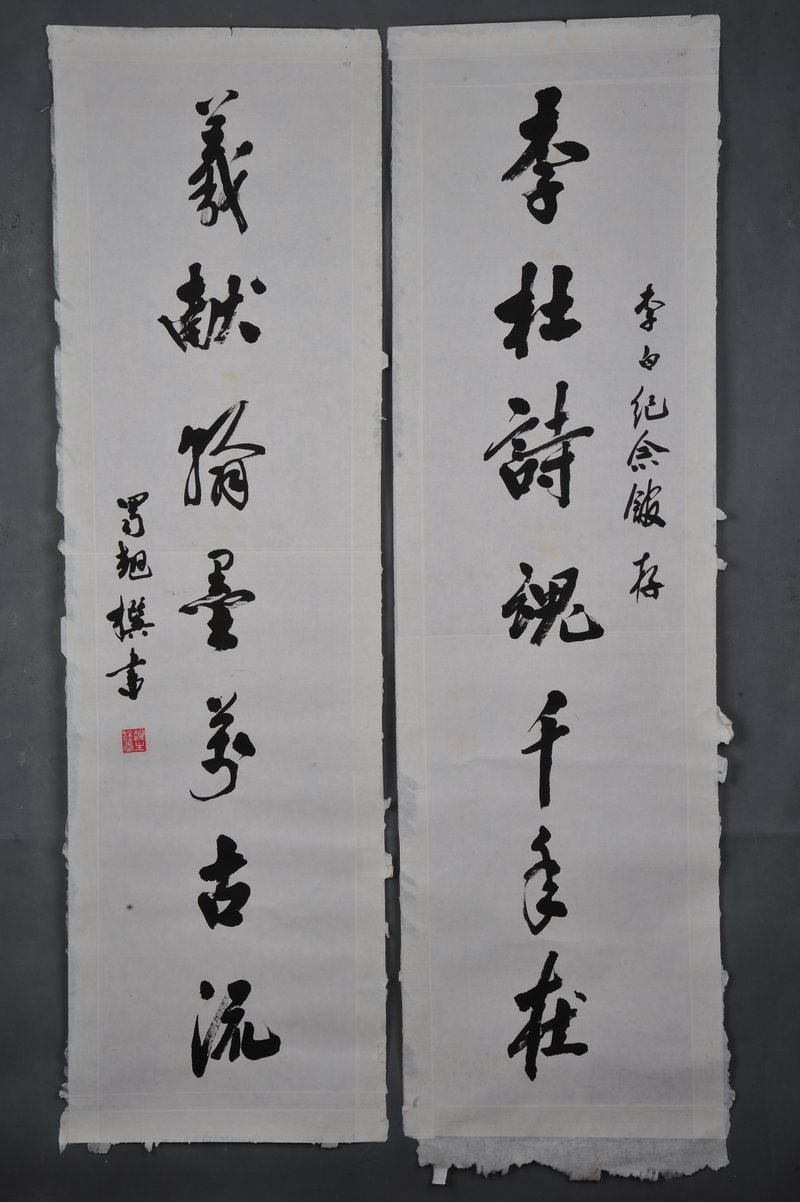 李杜詩魂千年在
李白纪念馆存
羲献翰墨万古流
蜀旭撰书